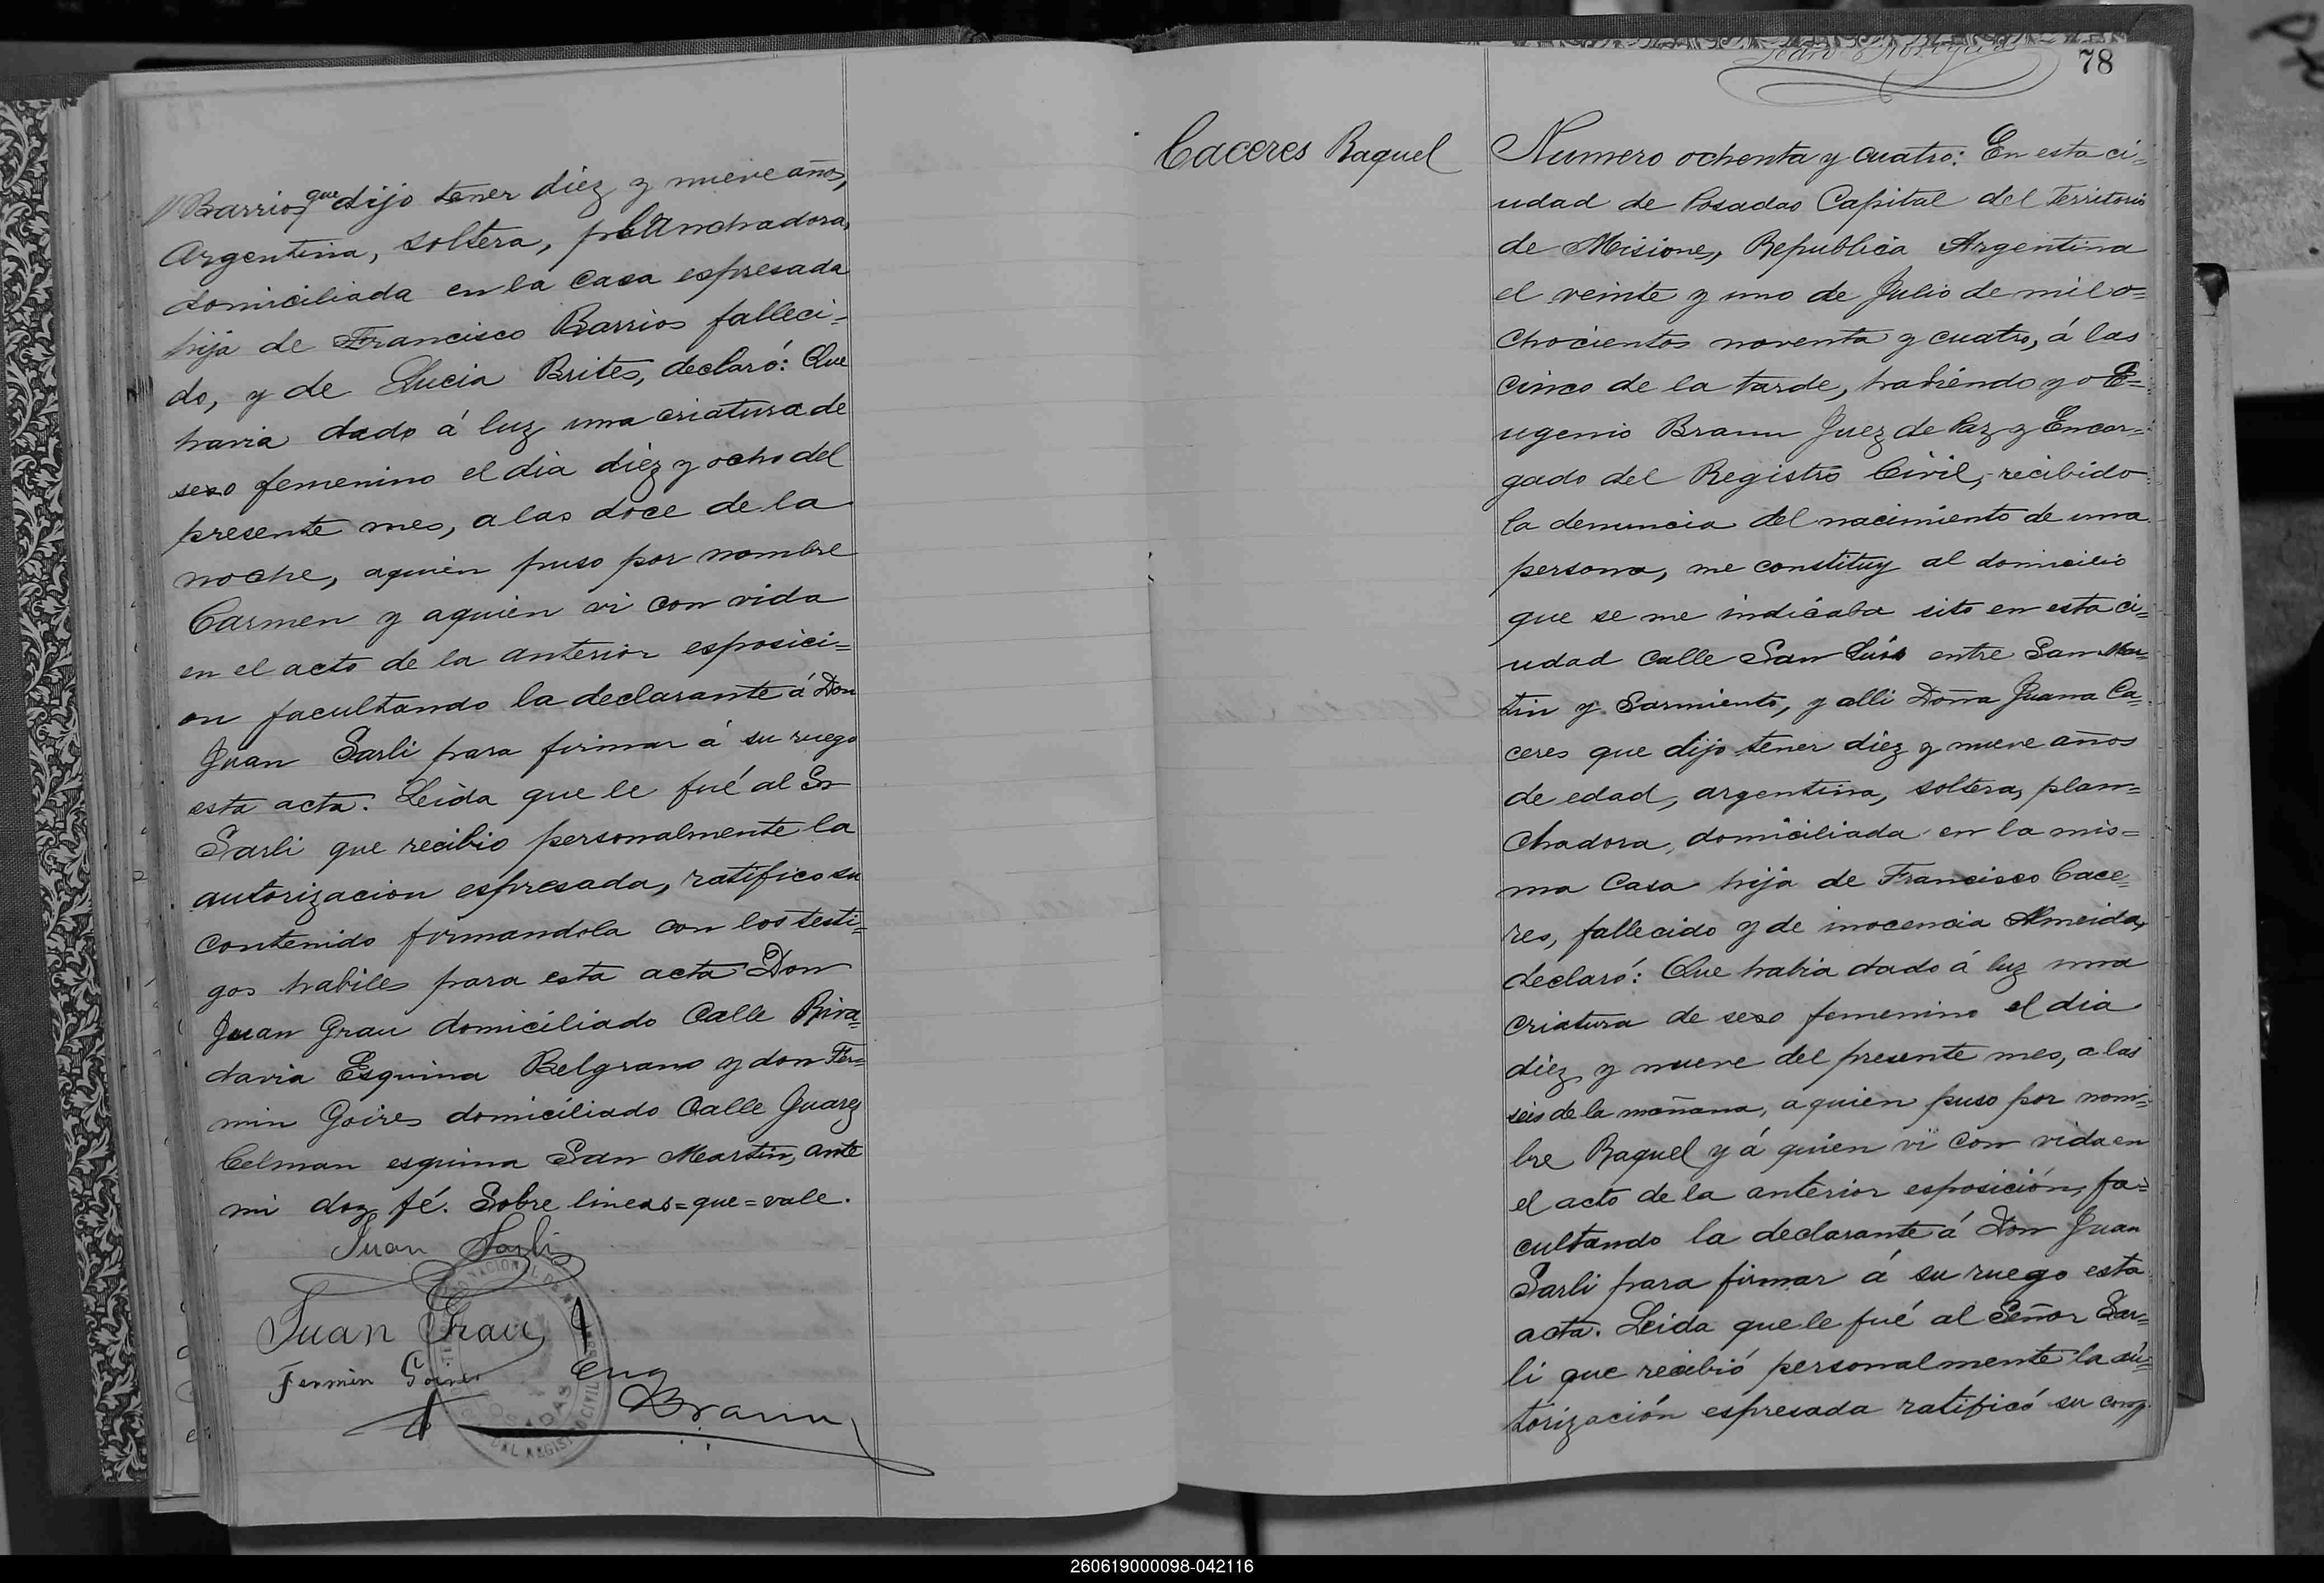 // Barrios que dijo tener diez y nueve años,
Argentina, soltera, planchadora,
domiciliada en la casa espresada
hija de Francisco Barrios falleci=
do, y de Lucia Brites, declaró: Que
havia dado á luz una criatura de
sexo femenino el dia diez y ocho del
presente mes, a las doce de la
noche, aquien puso por nombre
Carmen y aquien vi con vida
en el acto de la anterior esposici=
on facultando la declarante á Don
Juan Sarli para firmar á su ruego
esta acta. Leida que le fué al Sr
Sarli que recibio personalmente la
autorizacion espresada, ratifico su
contenido firmandola con los testi=
gos habiles para esta acta Don
Juan Grau domiciliado Calle Riva=
davia Esquina Belgrano y don Fer=
min Goires domiciliado Calle Juarez
Celman esquina San Martin, ante
mi doy fé. Sobre lineas=que=vale.
Juan Sarli
Juan Grau
Fermin Goires
Eug Braun
POSADAS
78
Caceres Raquel
Numero ochenta y cuatro: En esta ci=
udad de Posadas Capital del territorio
de Misiones, Republica Argentina
el veinte y uno de Julio de mil o=
chocientos noventa y cuatro, á las
cinco de la tarde, habiendo yo E=
ugenio Braun Juez de Paz y Encar=
gado del Registro Civil, recibido
la denuncia del nacimiento de una
persona, me constituy al domicilio
que se me indicaba sito en esta ci=
udad calle San Luis entre San Mar=
tin y Sarmiento, y alli Doña Juana Ca=
ceres que dijo tener diez y nueve años
de edad, argentina, soltera, plan=
chadora, domiciliada en la mis=
ma casa hija de Francisco Cace=
res, fallecido y de inocencia Almeida,
declaró: Que habia dado á luz una
criatura de sexo femenino el dia
diez y nueve del presente mes, a las
seis de la mañana, a quien puso por nom=
bre Raquel y á quien vi con vida en
el acto de la anterior esposición, fa=
cultando la declarante á Don Juan
Sarli para firmar á su ruego esta
acta. Leida que le fué al Señor Sar=
li que recibió personalmente la au=
torización espresada ratificó su con
260619000098-042116